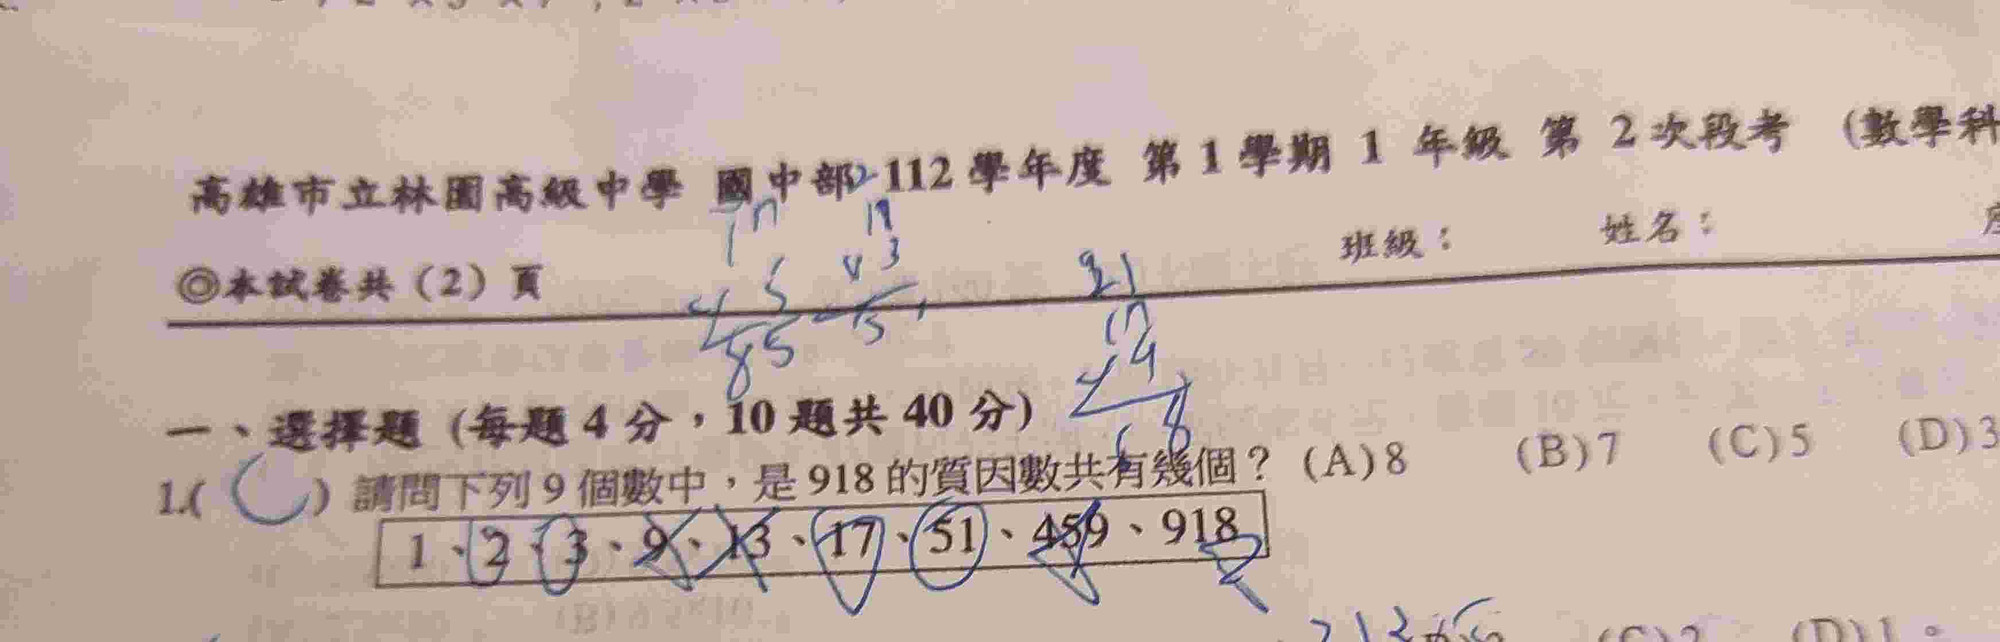 高雄市立林園高級中學 國中部 112 學年度 第 1 學期 1 年級 第 2 次段考 (數學科
班級： 姓名：
◎本試卷共（2）頁
17
5
85
17
3
51
17
4
68
一、選擇題 (每題 4 分，10 題共 40 分)
1.( C ) 請問下列 9 個數中，是 918 的質因數共有幾個？ (A) 8 (B) 7 (C) 5 (D) 3
1、2、3、9、13、17、51、459、918